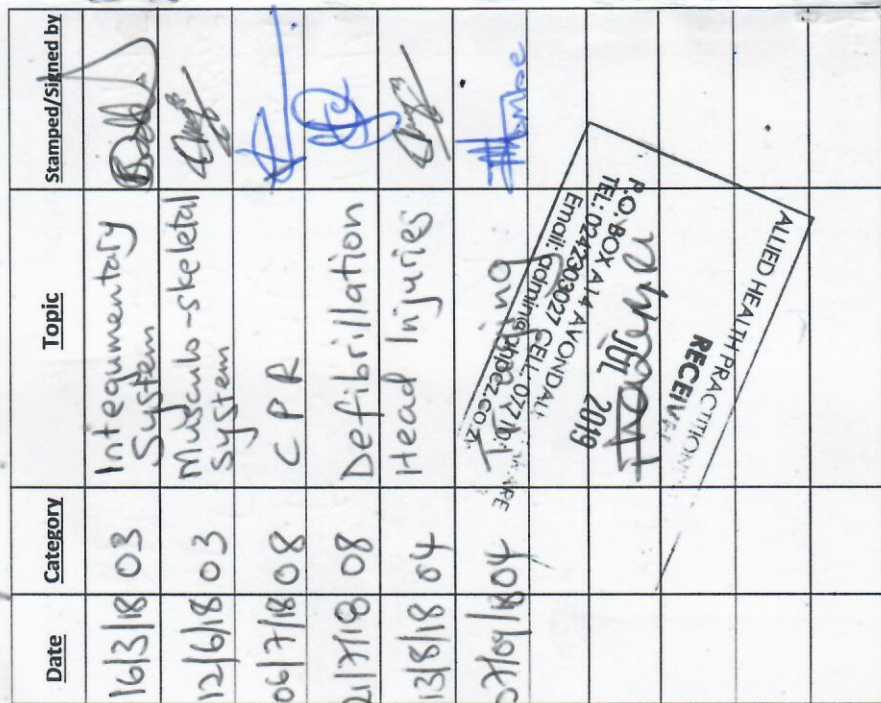 Date Category Topic Stamped/Signed by
16/3/18 03 Integumentary
System
12/6/18 03 Musculo-skeletal
system
06/7/18 08 CPR
21/7/18 08 Defibrillation
13/8/18 04 Head Injuries
07/09/18 04
ALLIED HEALTH PRACTITION
RECEIVE
JUL 2019
P.O. BOX A14 AVONDALE
TEL: 0242303027 CELL: 0771
Email: